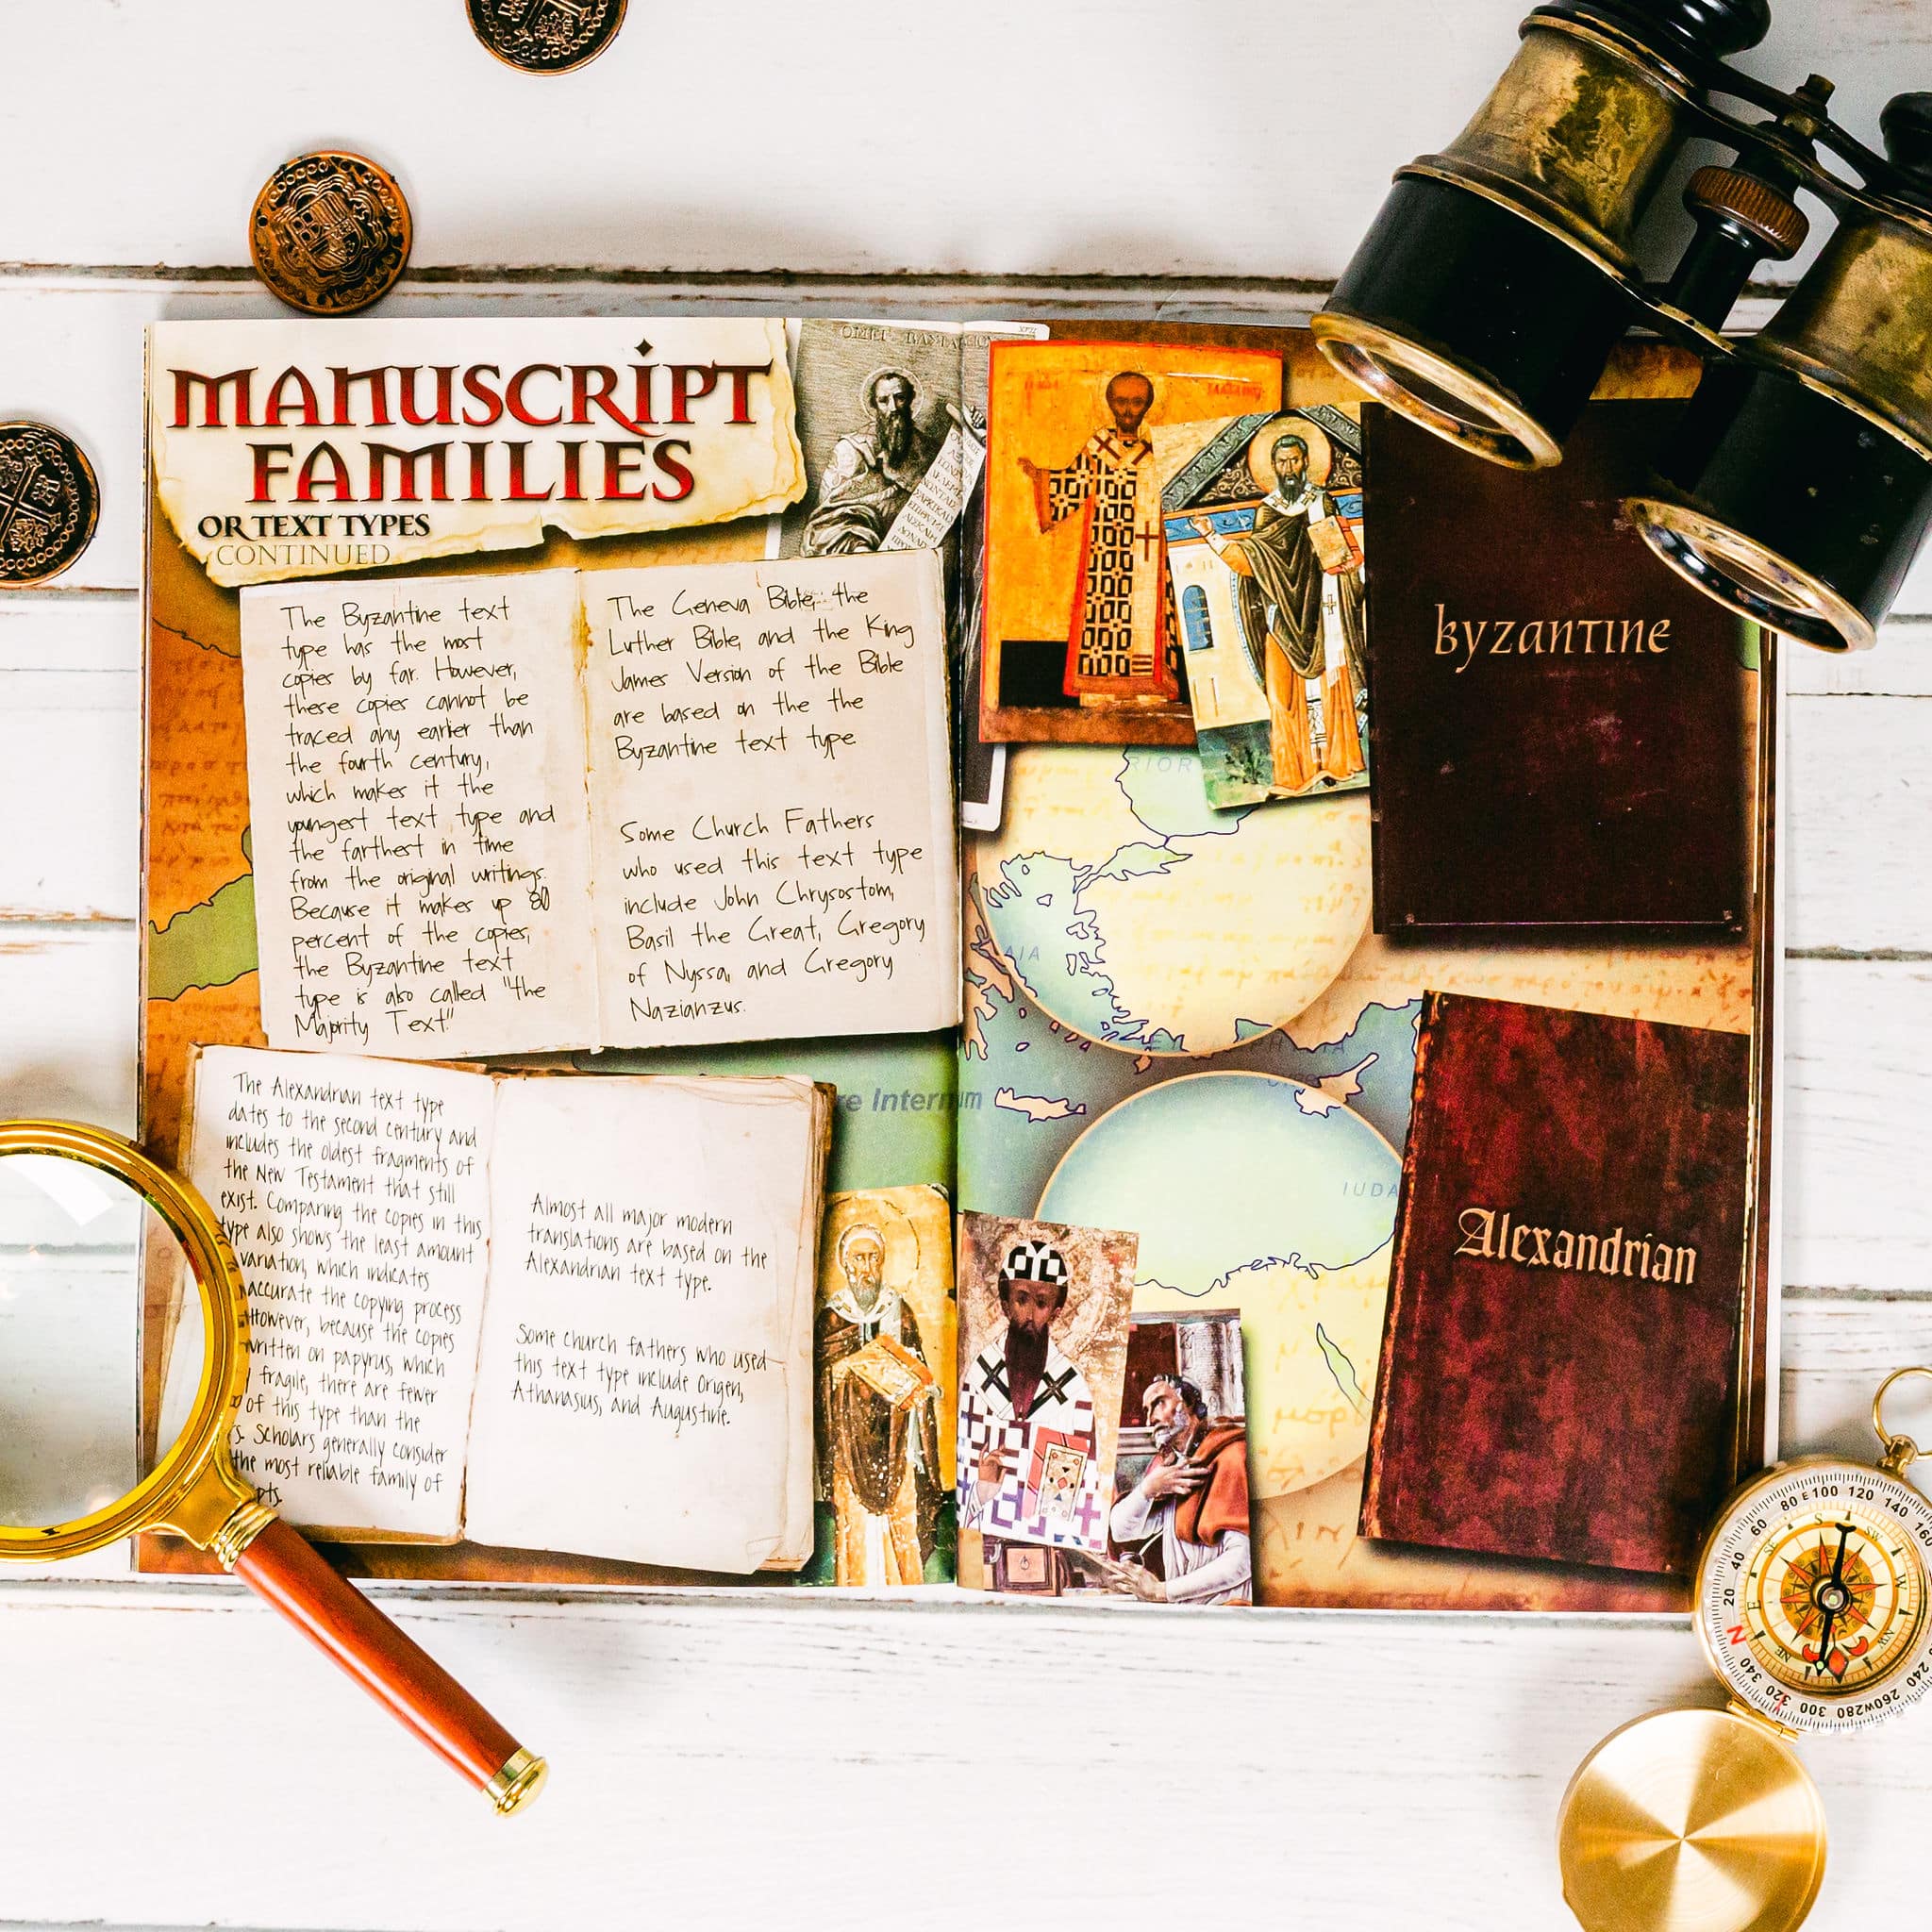 MANUSCRIPT
FAMILIES
OR TEXT TYPES
CONTINUED
The Byzantine text
type has the most
copies by far. However,
these copies cannot be
traced any earlier than
the fourth century,
which makes it the
youngest text type and
the farthest in time
from the original writings.
Because it makes up 80
percent of the copies,
the Byzantine text
type is also called "the
Majority Text."
The Geneva Bible, the
Luther Bible, and the King
James Version of the Bible
are based on the the
Byzantine text type
Some Church Fathers
who used this text type
include John Chrysostom,
Basil the Great, Gregory
of Nyssa, and Gregory
Nazianzus.
The Alexandrian text type
dates to the second century and
includes the oldest fragments of
the New Testament that still
exist. Comparing the copies in this
type also shows the least amount
variation, which indicates
accurate the copying process
However, because the copies
written on papyrus, which
fragile, there are fewer
of this type than the
Scholars generally consider
the most reliable family of
Almost all major modern
translations are based on the
Alexandrian text type.
Some church fathers who used
this text type include Origen,
Athanasius, and Augustine.
byzantine
Alexandrian
re Internum
IUDA
80 E 100 120 140 160
60
40
20
N
340
320
300
280
W
260
240
S
SW
W
NW
NE
E
SE